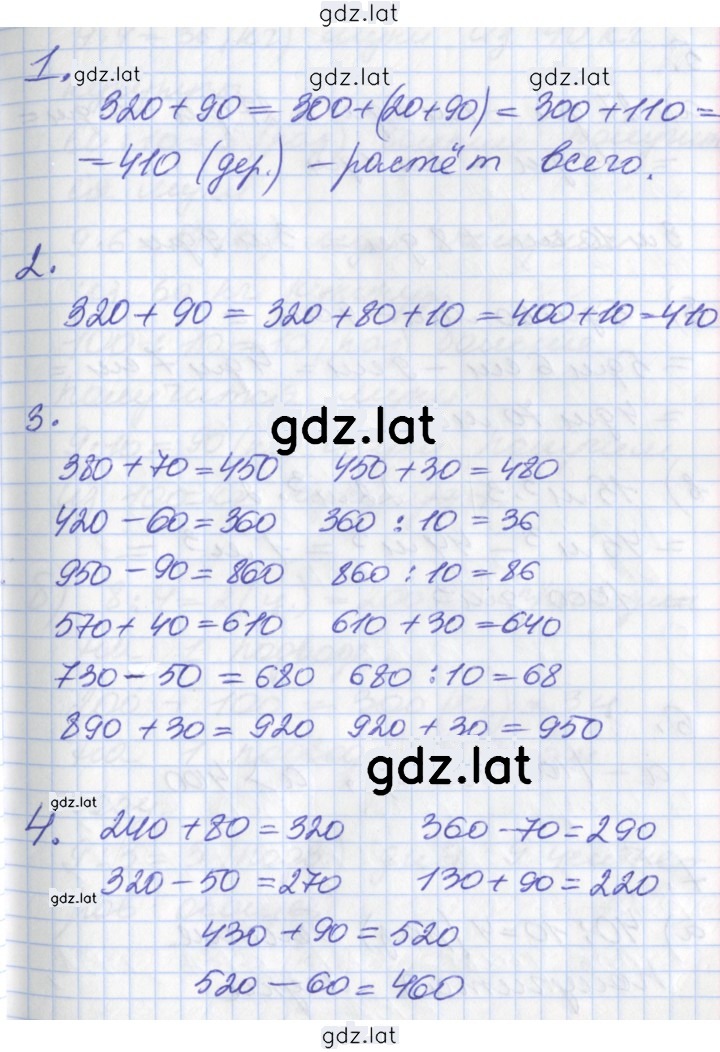 gdz.lat
1. gdz.lat gdz.lat gdz.lat
320 + 90 = 300+(20+90) = 300+110 =
= 410 (дер.) – растёт всего.
2.
320 + 90 = 320 + 80 + 10 = 400+10=410
3.
gdz.lat
380 + 70 = 450 450 + 30 = 480
420 – 60 = 360 360 : 10 = 36
950 – 90 = 860 860 : 10 = 86
570 + 40 = 610 610 + 30 = 640
730 – 50 = 680 680 : 10 = 68
890 + 30 = 920 920 + 30 = 950
gdz.lat
gdz.lat
4. 240 + 80 = 320 360 – 70 = 290
320 – 50 = 270 130 + 90 = 220
gdz.lat
430 + 90 = 520
520 – 60 = 460
gdz.lat